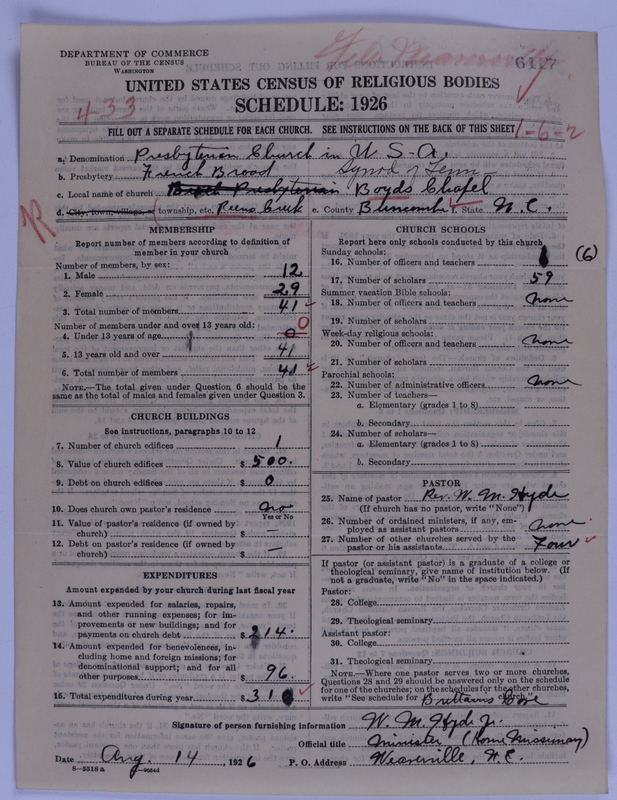 DEPARTMENT OF COMMERCE
BUREAU OF THE CENSUS
WASHINGTON
6127
UNITED STATES CENSUS OF RELIGIOUS BODIES
SCHEDULE: 1926
433
FILL OUT A SEPARATE SCHEDULE FOR EACH CHURCH. SEE INSTRUCTIONS ON THE BACK OF THIS SHEET
1-6-2
a. Denomination Presbyterian Church in U.S.A.
b. Presbytery French Broad Synod of Tenn
c. Local name of church Presbyterian Boyds Chapel
d. City, town, village, or township, etc. Reems Creek e. County Buncombe f. State N.C.
R
MEMBERSHIP
Report number of members according to definition of
member in your church
Number of members, by sex:
1. Male 12
2. Female 29
3. Total number of members 41
Number of members under and over 13 years old:
4. Under 13 years of age 0 0
5. 13 years old and over 41
6. Total number of members 41
NOTE.—The total given under Question 6 should be
the same as the total of males and females given under Question 3.
CHURCH BUILDINGS
See instructions, paragraphs 10 to 12
7. Number of church edifices 1
8. Value of church edifices $ 500.
9. Debt on church edifices $ 0
10. Does church own pastor's residence no
Yes or No
11. Value of pastor's residence (if owned by
church) $ —
12. Debt on pastor's residence (if owned by
church) $ —
EXPENDITURES
Amount expended by your church during last fiscal year
13. Amount expended for salaries, repairs,
and other running expenses; for im-
provements or new buildings; and for
payments on church debt $ 214.
14. Amount expended for benevolences, in-
cluding home and foreign missions; for
denominational support; and for all
other purposes $ 96.
15. Total expenditures during year $ 310
CHURCH SCHOOLS
Report here only schools conducted by this church
Sunday schools:
16. Number of officers and teachers (6)
17. Number of scholars 59
Summer vacation Bible schools:
18. Number of officers and teachers none
19. Number of scholars
Week-day religious schools:
20. Number of officers and teachers none
21. Number of scholars
Parochial schools:
22. Number of administrative officers none
23. Number of teachers—
a. Elementary (grades 1 to 8)
b. Secondary
24. Number of scholars—
a. Elementary (grades 1 to 8)
b. Secondary
PASTOR
25. Name of pastor Rev. W. M. Hyde
(If church has no pastor, write "None")
26. Number of ordained ministers, if any, em-
ployed as assistant pastors none.
27. Number of other churches served by the
pastor or his assistants Four
If pastor (or assistant pastor) is a graduate of a college or
theological seminary, give name of institution below. (If
not a graduate, write "No" in the space indicated.)
Pastor:
28. College
29. Theological seminary
Assistant pastor:
30. College
31. Theological seminary
NOTE.—Where one pastor serves two or more churches,
Questions 28 and 29 should be answered only on the schedule
for one of the churches; on the schedules for the other churches,
write "See schedule for Brittains Cove Church."
Signature of person furnishing information W. M. Hyde Jr.
Official title Minister (Home Missionary)
Date Aug. 14, 1926 P. O. Address Weaverville, N.C.
8—5518a